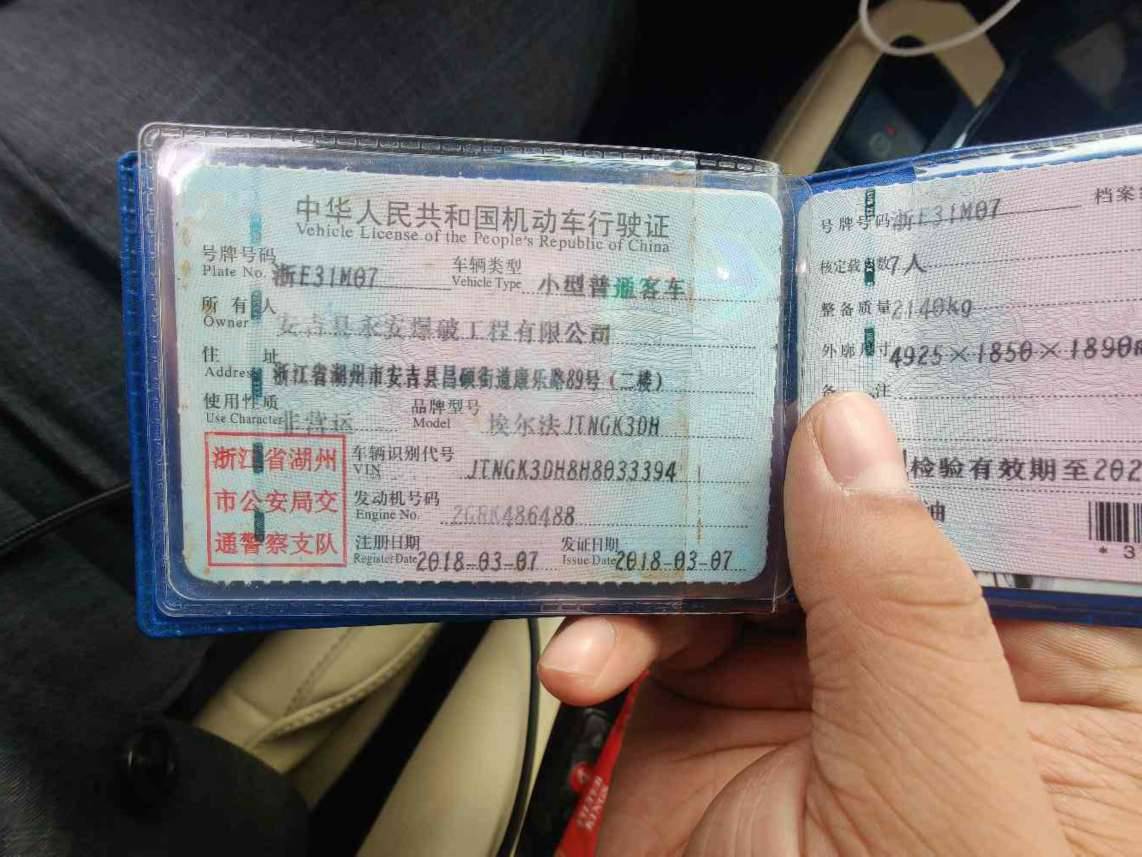 中华人民共和国机动车行驶证
Vehicle License of the People's Republic of China
号牌号码 浙E31M07 车辆类型 小型普通客车
Plate No. Vehicle Type
所有人 安吉县永安爆破工程有限公司
Owner
住址 浙江省湖州市安吉县昌硕街道康乐路89号（二楼）
Address
使用性质 非营运 品牌型号 埃尔法JTNGK3DH
Use Character Model
浙江省湖州
市公安局交
通警察支队
车辆识别代号 JTNGK3DH8H8033394
VIN
发动机号码 2GRK486488
Engine No.
注册日期 2018-03-07 发证日期 2018-03-07
Register Date Issue Date
号牌号码 浙E31M07 档案
核定载人数 7人
整备质量 2140kg
外廓尺寸 4925×1850×1890m
备注
检验有效期至202
油
* 3